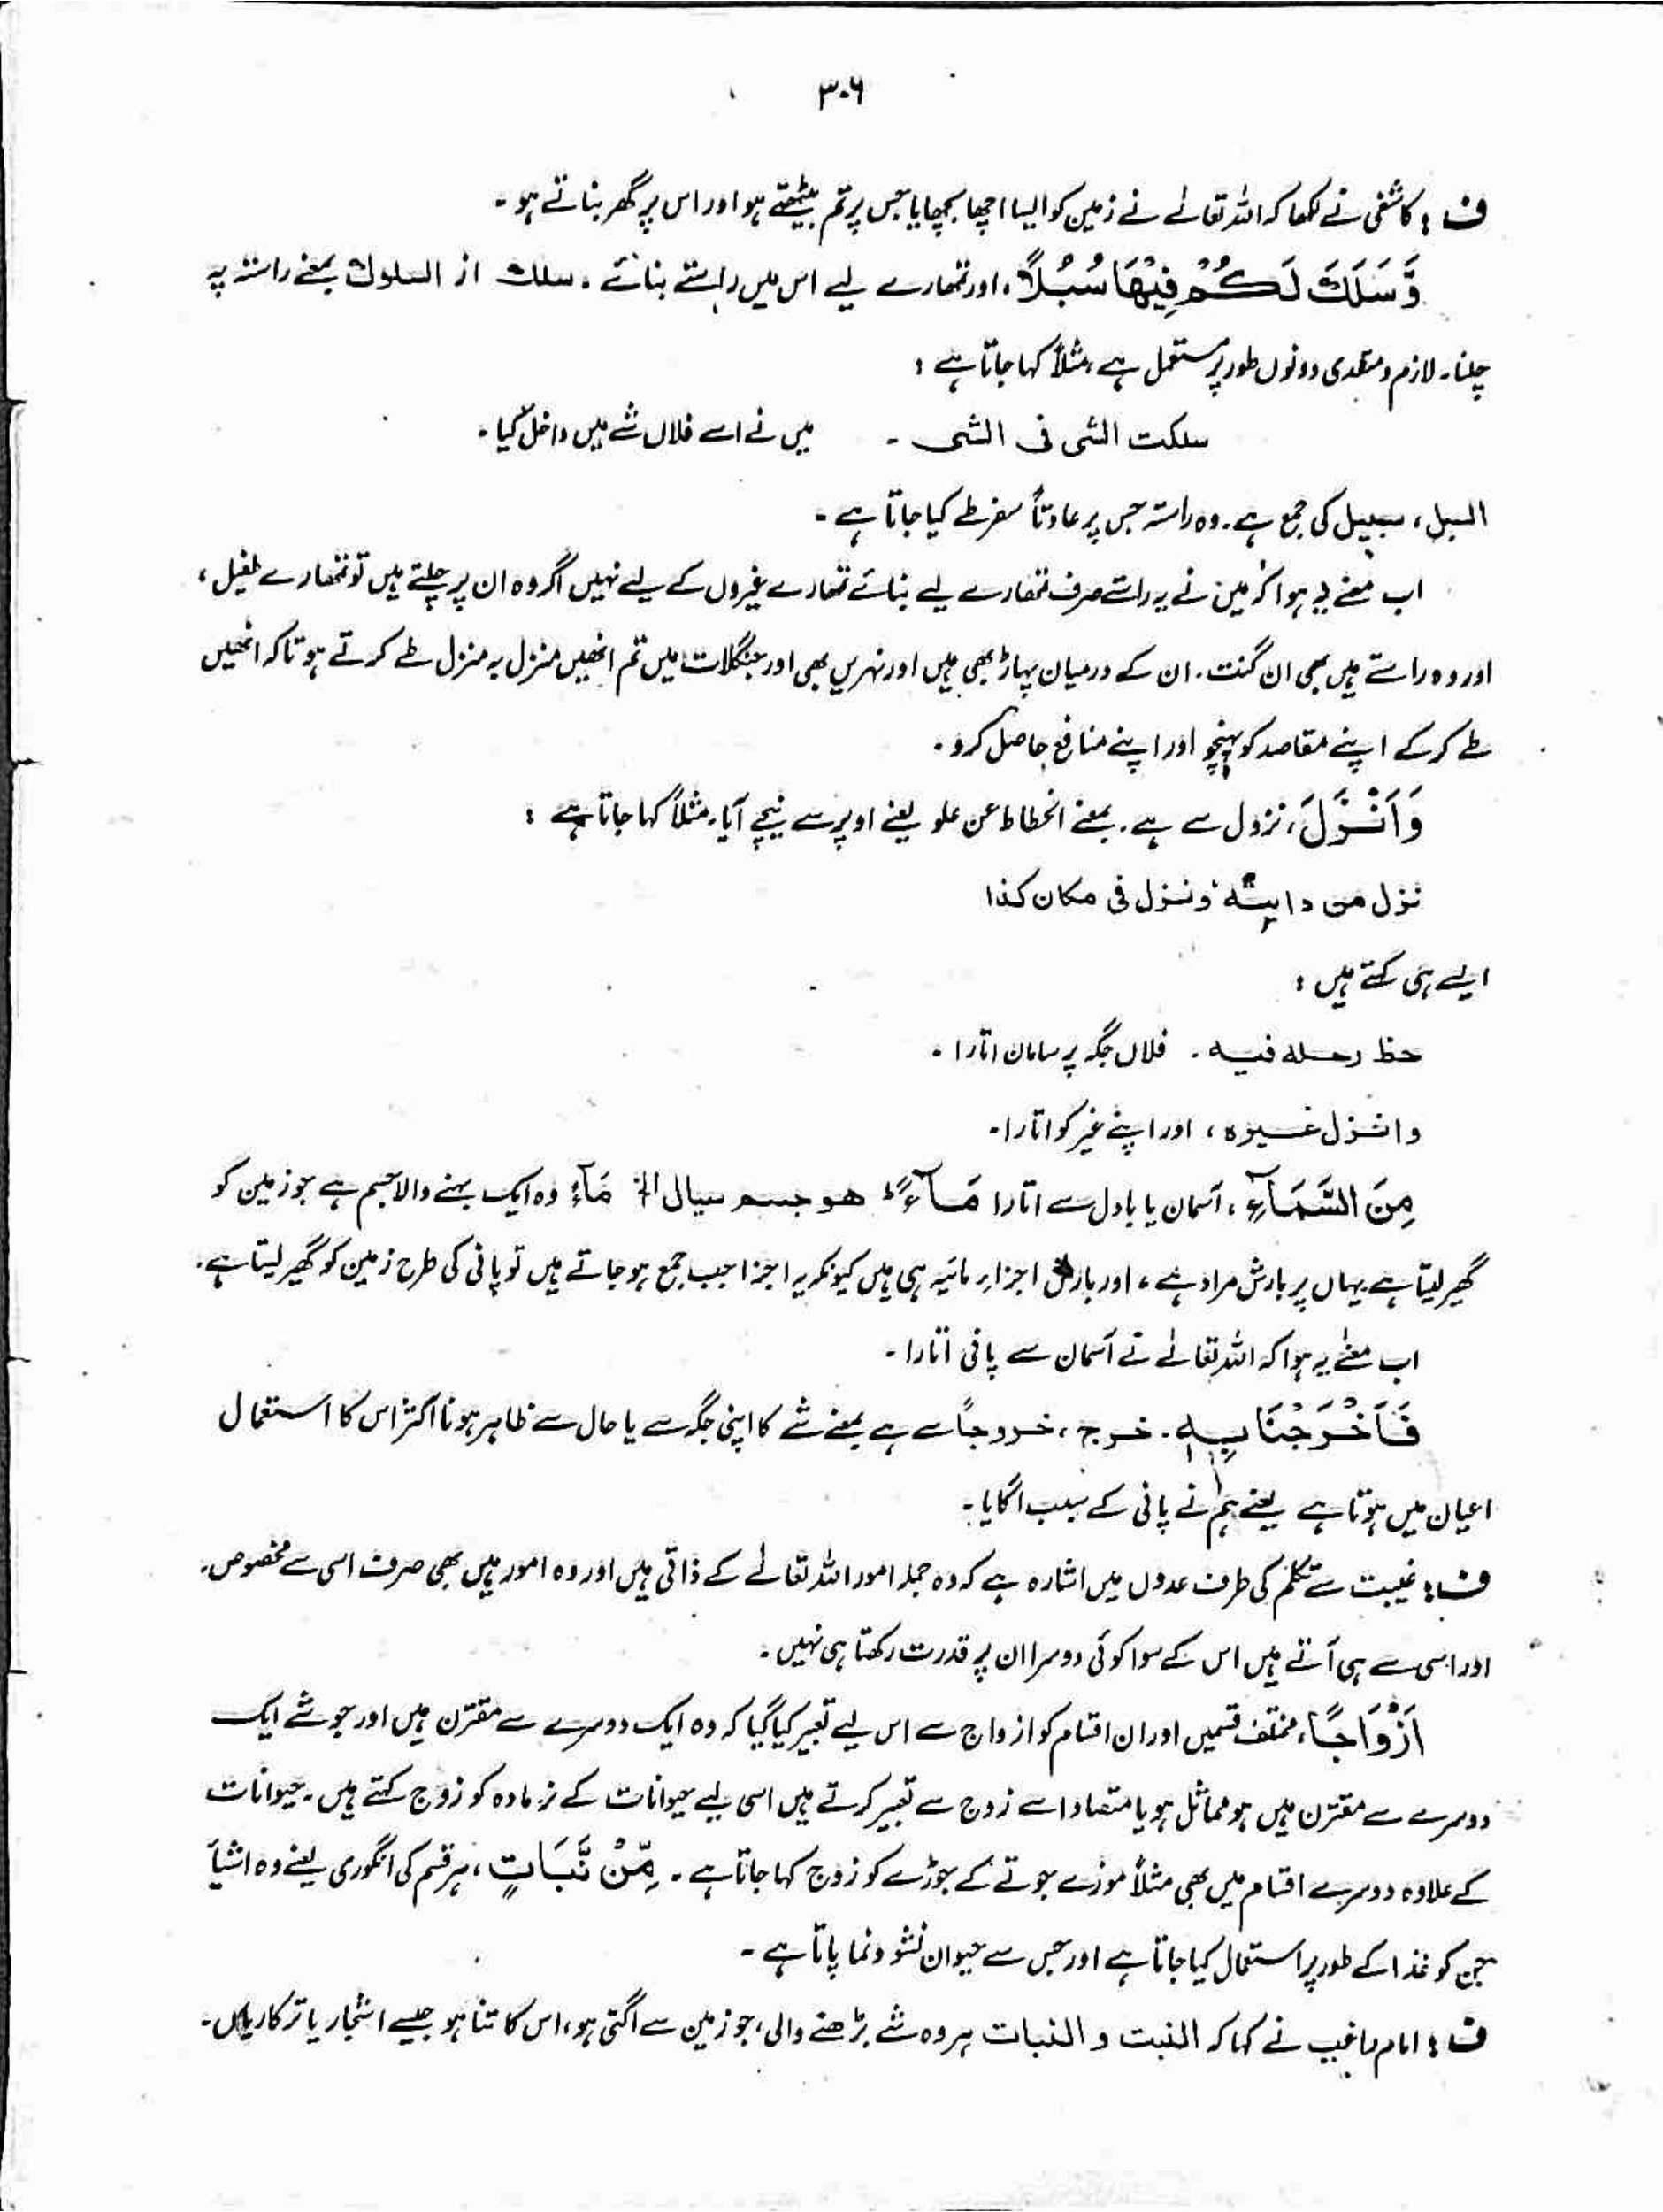 ۳۰۶
ف : کاشفی نے لکھا کہ اللہ تعالےٰ نے زمین کو ایسا اچھا بچھایا جس پر تم بیٹھتے ہو اور اس پر گھر بناتے ہو ۔
وَّسَلَكَ لَكُمْ فِيْهَا سُبُلًا ، اور تمھارے لیے اس میں راستے بنائے ۔ سلك از السلوك بمعنے راستہ پہ
چلنا۔ لازم و متعدی دونوں طور پر مستعمل ہے ، مثلاً کہا جاتا ہے :
سلکت الشی فی الشی ۔ میں نے اسے فلاں شے میں داخل کیا ۔
السبل ، سبیل کی جمع ہے ۔ وہ راستہ جس پر عادتاً سفر طے کیا جاتا ہے ۔
اب معنے یہ ہوا کہ میں نے یہ راستے صرف تمھارے لیے بنائے تمھارے غیروں کے لیے نہیں اگر وہ ان پر چلتے ہیں تو تمھارے طفیل ،
اور وہ راستے ہیں بھی ان گنت ۔ ان کے درمیان پہاڑ بھی ہیں اور نہریں بھی اور جنگلات میں تم انھیں منزل بہ منزل طے کرتے ہو تاکہ انھیں
طے کر کے اپنے مقاصد کو پہنچو اور اپنے منافع حاصل کرو ۔
وَاَنْزَلَ ، نزول سے ہے ۔ بمعنے انحطاط عن علو یعنے اوپر سے نیچے آیا ۔ مثلاً کہا جاتا ہے :
نزل من دابتہ و نزل فی مکان کذا
ایسے ہی کہتے ہیں :
حط رحله فيه ۔ فلاں جگہ پر سامان اتارا ۔
وانزل غيره ، اور اپنے غیر کو اتارا ۔
مِنَ السَّمَآءِ ، آسمان یا بادل سے اتارا مَآءً ط هو جسم سيال الخ مَآءً وہ ایک بہنے والا جسم ہے جو زمین کو
گھیر لیتا ہے یہاں پر بارش مراد ہے ، اور بارش اجزاء مائیہ ہی ہیں کیونکہ یہ اجزا جب جمع ہو جاتے ہیں تو پانی کی طرح زمین کو گھیر لیتا ہے ۔
اب معنے یہ ہوا کہ اللہ تعالےٰ نے آسمان سے پانی اتارا ۔
فَاَخْرَجْنَا بِهٖ ۔ خرج ، خروجاً سے ہے بمعنے شے کا اپنی جگہ سے یا حال سے ظاہر ہونا اکثر اس کا استعمال
اعیان میں ہوتا ہے یعنے ہم نے پانی کے سبب اگایا ۔
ف : غیبت سے تکلم کی طرف عدول میں اشارہ ہے کہ وہ جملہ امور اللہ تعالےٰ کے ذاتی ہیں اور وہ امور ہیں بھی صرف اسی سے مخصوص ۔
اور اسی سے ہی آتے ہیں اس کے سوا کوئی دوسرا ان پر قدرت رکھتا ہی نہیں ۔
اَزْوَاجًا ، مختلف قسمیں اور ان اقسام کو ازواج سے اس لیے تعبیر کیا گیا کہ وہ ایک دوسرے سے مقترن ہیں اور جو شے ایک
دوسرے سے مقترن ہیں ہو مماثل ہو یا متضاد اسے زوج سے تعبیر کرتے ہیں اسی لیے حیوانات کے نر مادہ کو زوج کہتے ہیں ۔ حیوانات
کے علاوہ دوسرے اقسام میں بھی مثلاً موزے جوتے کے جوڑے کو زوج کہا جاتا ہے ۔ مِّنْ نَّبَاتٍ ، ہر قسم کی انگوری یعنے وہ اشیأ
جن کو غذا کے طور پر استعمال کیا جاتا ہے اور جس سے حیوان نشو و نما پاتا ہے ۔
ف : امام راغب نے کہا کہ النبت و النبات ہر وہ شے بڑھنے والی ، جو زمین سے اگتی ہو ، اس کا تنا ہو جیسے اشجار یا ترکاریاں ۔